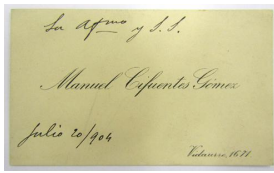 Su Afmo y S. S.
Manuel Cifuentes Gómez
Julio 20/904
1671